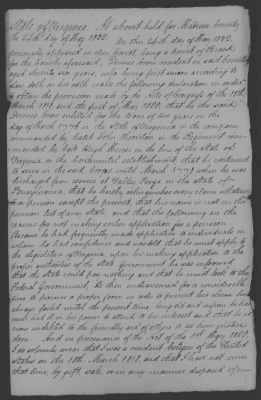 State of Virginia. At a Court held for Madison County
the 24th day of May 1832.
On this 24th day of May 1832.
personally appeared in open Court, being a Court of Record
for the County aforesaid, Dennis resident in said County
aged Seventy six years, who being first sworn according to
law doth on his oath make the following declaration in order
to obtain the provision made by the Acts of Congress of the 18th
March 1818. and the first of May 1820, that he the said
Dennis was enlisted for the term of two years on the
day of March 1776 in the State of Virginia in the company
commanded by Capt John in the Regiment com-
manded by Col in the line of the State of
Virginia on the Continental establishment, that he continued
to serve in the said Corps until March 1778 when he was
discharged from service at Valley Forge in the state of
Pennsylvania, that he hereby relinquishes every claim whatever
to a pension except the present, that his name is not on the
pension list of any state, and that the following are the
reasons for not making earlier application for a pension
Because he had frequently made application to individuals in
whom he had confidence and was told that he must apply to
the legislature of Virginia, upon his making application to the
proper authorities of the state government he was informed
that the state could pay nothing and that he must look to the
Federal Government. He then endeavoured for a considerable
time to procure a proper form in order to present his claim but
always failed until the present time, being old and infirm he has
not had it in his power to attend to his interest and that he is
now indebted to the friendly aid of others to see him justice
done. And in pursuance of the Act of the 1st May 1820.
I do solemnly swear that I was a resident Citizen of the United
States on the 18th March 1818. and that I have not since
that time, by gift, sale, or in any manner disposed of my